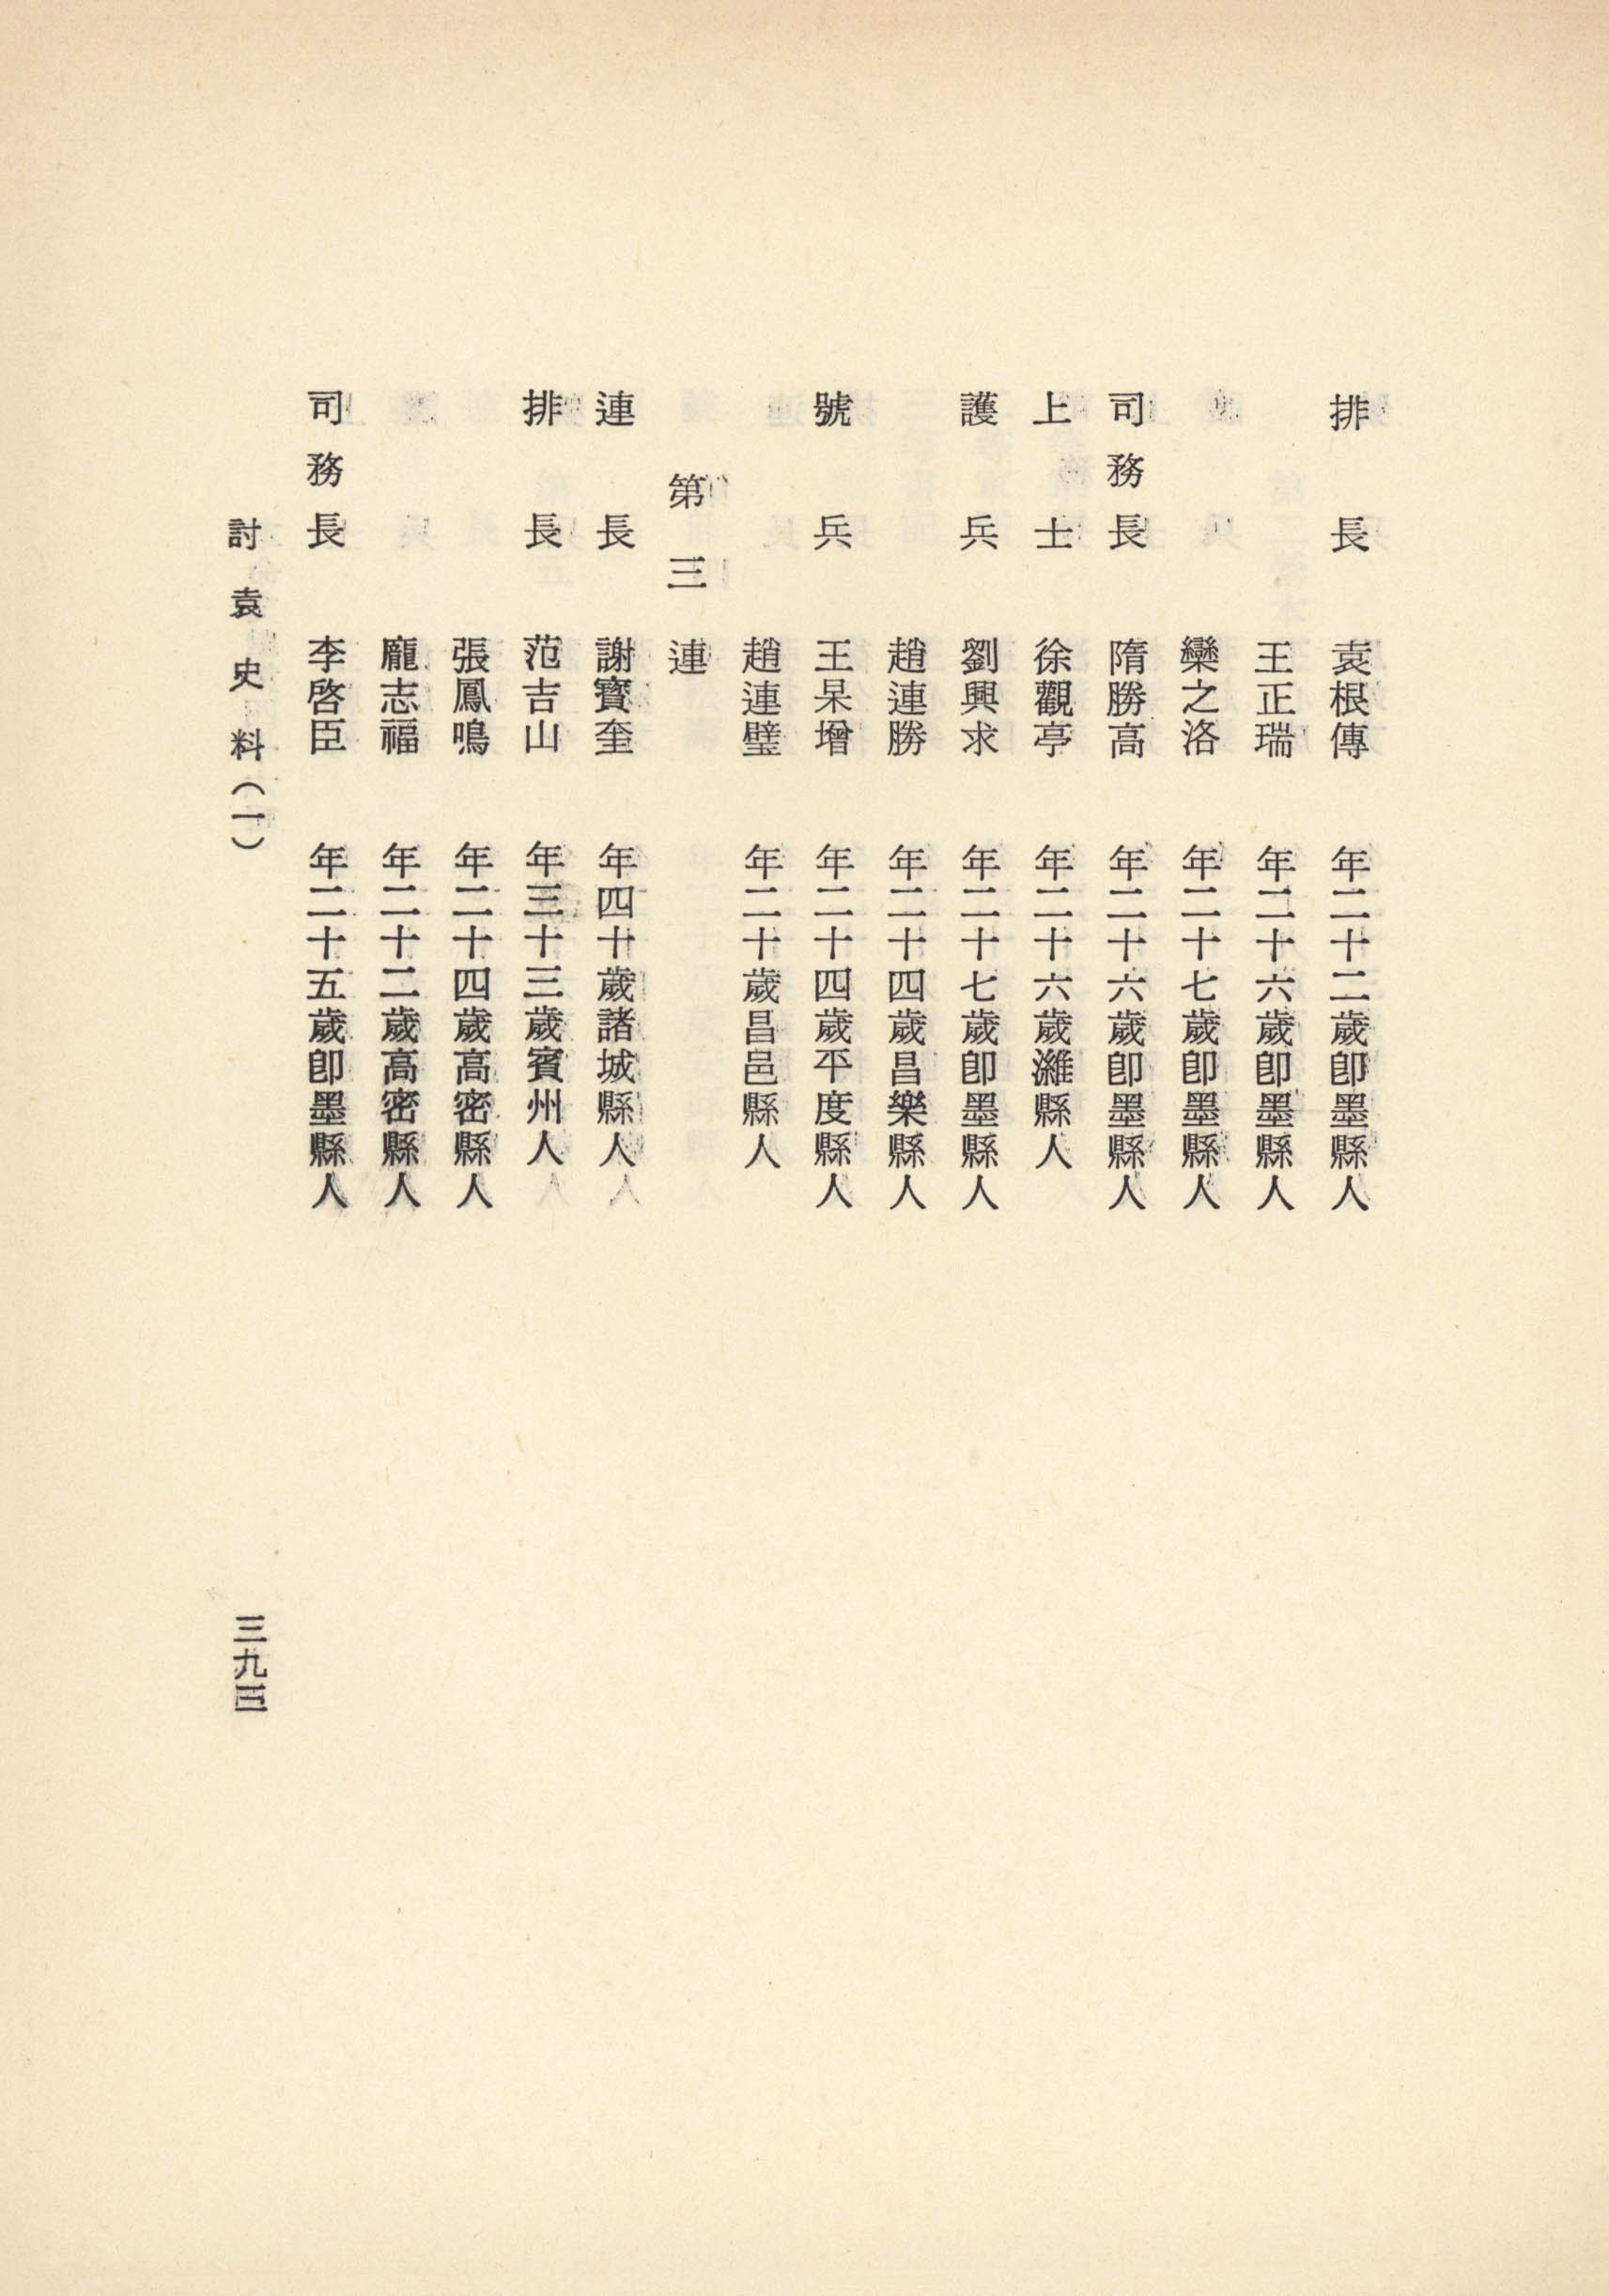 排長　袁根傳　年二十二歲卽墨縣人
王正瑞　年二十六歲卽墨縣人
欒之洛　年二十七歲卽墨縣人
司務長　隋勝高　年二十六歲卽墨縣人
上士　徐觀亭　年二十六歲濰縣人
護兵　劉興求　年二十七歲卽墨縣人
趙連勝　年二十四歲昌樂縣人
號兵　王杲增　年二十四歲平度縣人
趙連璧　年二十歲昌邑縣人
第三連
連長　謝寶奎　年四十歲諸城縣人
排長　范吉山　年三十三歲賓州人
張鳳鳴　年二十四歲高密縣人
龐志福　年二十二歲高密縣人
司務長　李啓臣　年二十五歲卽墨縣人
討袁史料（一）
三九三